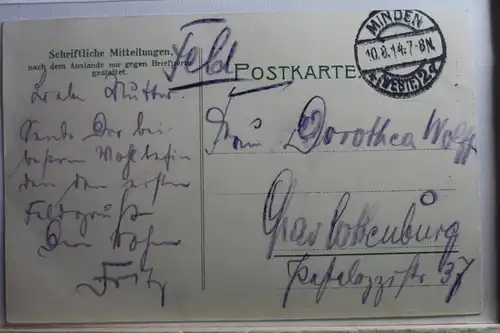 Schriftliche Mitteilungen.
nach dem Auslande nur gegen Briefporto
gestattet.
Feld
POSTKARTE.
MINDEN
10.8.14.7-8N.
*(WESTF)2d
Liebe Mutter.
Sende Dir bei
bestem Wohlbefin
den den ersten
Feldgruß
Dein Sohn
Fritz
Frau Dorothea Wolff
Charlottenburg
Pestalozzistr 37